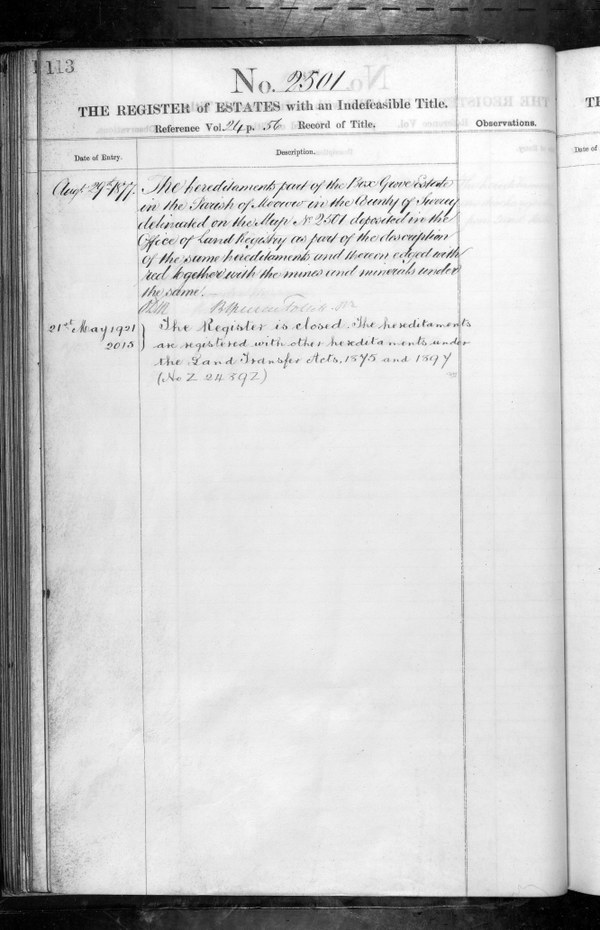 113
No. 2501
THE REGISTER of ESTATES with an Indefeasible Title.
Reference Vol. 24 p. 56 Record of Title.
Observations.
Date of Entry.
Description.
Augt. 29th 1877.
The hereditaments part of the Box Grove Estate
in the Parish of Merrow in the County of Surrey
delineated on the Map No 2501 deposited in the
Office of Land Registry as part of the description
of the same hereditaments and thereon edged with
red together with the mines and minerals under
the same.
21st May 1921
2015
The Register is closed. The hereditaments
are registered with other hereditaments under
the Land Transfer Acts, 1875 and 1897
(No Z 24392)
TH
Date of